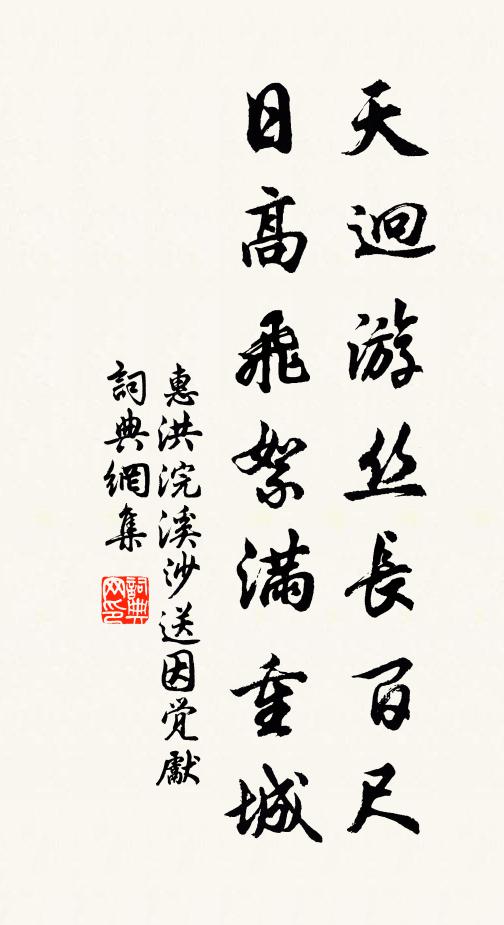 天迥游丝長百尺
日高飛絮滿重城
惠洪浣溪沙送因觉獻
詞典網集
詞典網印